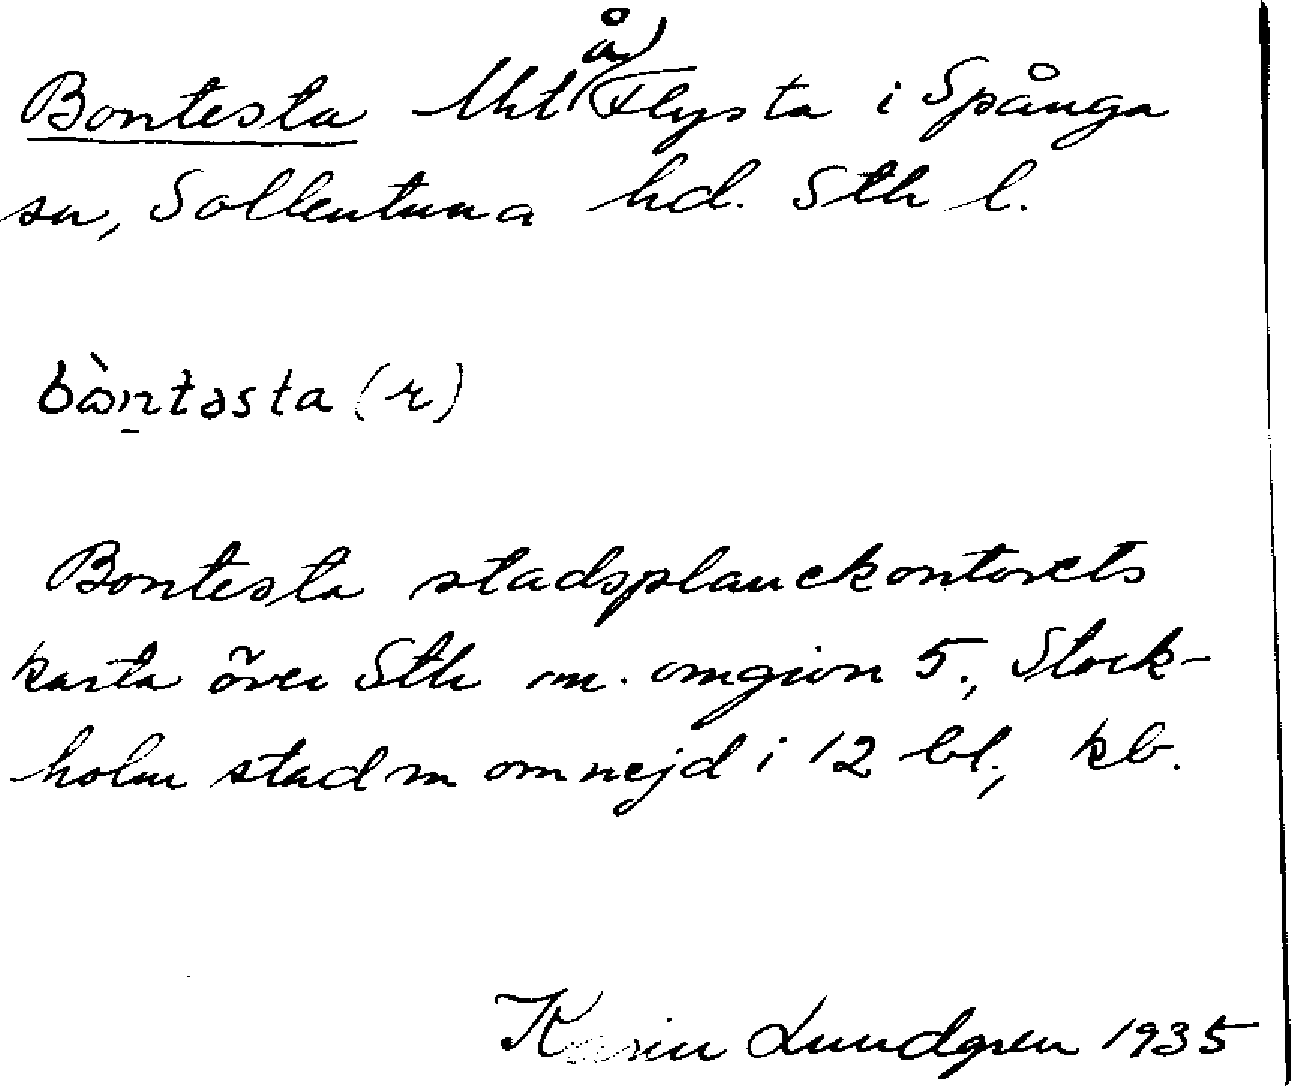 Bontesta Lht å Flysta i Spånga
sn, Sollentuna hd. Sth l.
bòntəsta (r)
Bontesta stadsplanekontorets
karta över Sth m. omgivn 5., Stock-
holm stad m omnejd i 12 bl., kb.
Karin Lundgren 1935